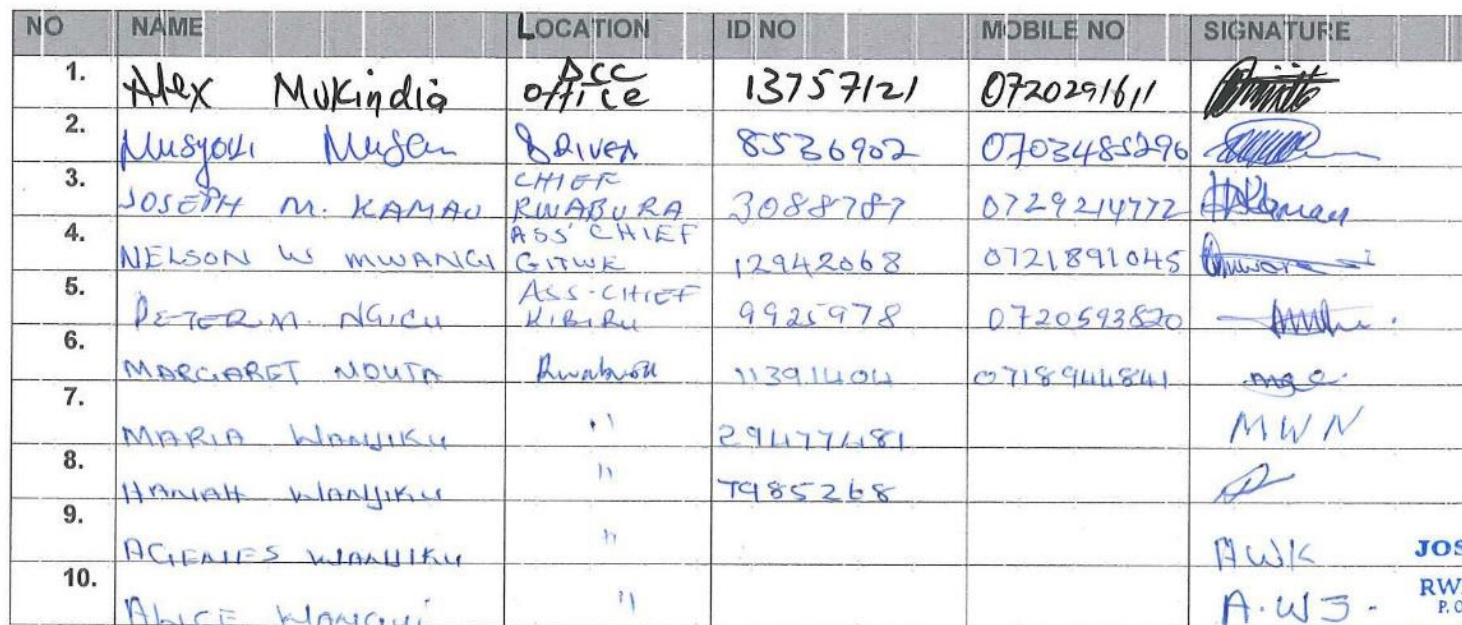 NO NAME LOCATION ID NO MOBILE NO SIGNATURE
1. Alex Mukindia DCC office 13757121 0720291611
2. Musyoki 8536902 0703485296
3. JOSEPH M. KAMAU CHIEF RWABURA 3088787 0729214772
4. NELSON W MWANGI ASS' CHIEF GITWE 12942068 0721891045
5. PETER M. NGICU ASS-CHIEF KIBIRU 9925978 0720593820
6. MARGARET NDUTA 11391404 0718944841
7. MARIA WANJIKU " 29477481 MWN
8. HANAH WANJIKU " 7985268
9. AGENIES WANJIKU " AWK
JOS
10. ALICE WANGUI " A.WJ-
RW
P. O